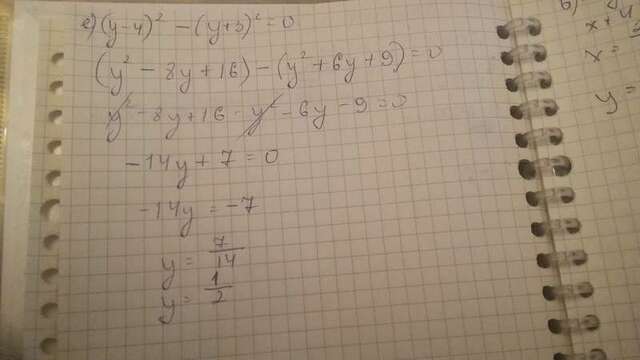 e) (y-4)² - (y+3)² = 0
(y² - 8y + 16) - (y² + 6y + 9) = 0
y² - 8y + 16 - y² - 6y - 9 = 0
-14y + 7 = 0
-14y = -7
y = 7/14
y = 1/2
б)
x + 4
x =
y =